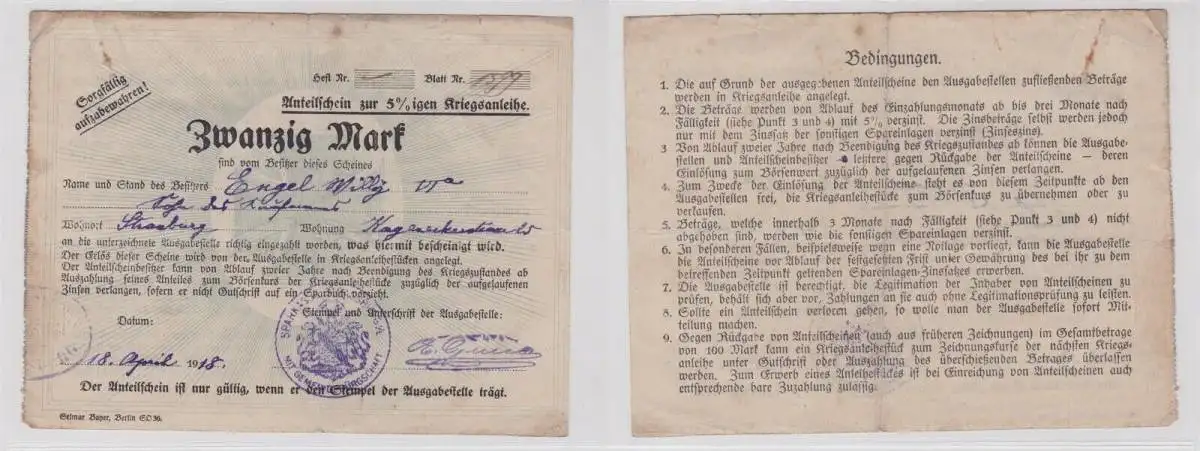 Sorgfältig
aufzubewahren!
Heft Nr. Blatt Nr.
Anteilschein zur 5%igen Kriegsanleihe.
Zwanzig Mark
sind vom Besitzer dieses Scheines
Name und Stand des Besitzers Engel Willy
Sohn des Kaufmanns
Wohnort Strassburg Wohnung
an die unterzeichnete Ausgabestelle richtig eingezahlt worden, was hiermit bescheinigt wird.
Der Erlös dieser Scheine wird von der Ausgabestelle in Kriegsanleihestücken angelegt.
Der Anteilscheinbesitzer kann von Ablauf zweier Jahre nach Beendigung des Kriegszustandes ab
Auszahlung seines Anteiles zum Börsenkurs der Kriegsanleihestücke zuzüglich der aufgelaufenen
Zinsen verlangen, sofern er nicht Gutschrift auf ein Sparbuch vorzieht.
Stempel und Unterschrift der Ausgabestelle:
Datum:
MIT GEMEINDEBÜRGSCHAFT
18. April 1918.
Der Anteilschein ist nur gültig, wenn er den Stempel der Ausgabestelle trägt.
Selmar Bayer, Berlin SO 36.
Bedingungen.
1. Die auf Grund der ausgegebenen Anteilscheine den Ausgabestellen zufließenden Beträge
werden in Kriegsanleihe angelegt.
2. Die Beträge werden von Ablauf des Einzahlungsmonats ab bis drei Monate nach
Fälligkeit (siehe Punkt 3 und 4) mit 5% verzinst. Die Zinsbeträge selbst werden jedoch
nur mit dem Zinssatz der sonstigen Spareinlagen verzinst (Zinseszins).
3 Von Ablauf zweier Jahre nach Beendigung des Kriegszustandes ab können die Ausgabe-
stellen und Anteilscheinbesitzer letztere gegen Rückgabe der Anteilscheine – deren
Einlösung zum Börsenwert zuzüglich der aufgelaufenen Zinsen verlangen.
4. Zum Zwecke der Einlösung der Anteilscheine steht es von diesem Zeitpunkte ab den
Ausgabestellen frei, die Kriegsanleihestücke zum Börsenkurs zu übernehmen oder zu
verkaufen.
5. Beträge, welche innerhalb 3 Monate nach Fälligkeit (siehe Punkt 3 und 4) nicht
abgehoben sind, werden wie die sonstigen Spareinlagen verzinst.
6. In besonderen Fällen, beispielsweise wenn eine Notlage vorliegt, kann die Ausgabestelle
die Anteilscheine vor Ablauf der festgesetzten Frist unter Gewährung des bei ihr zu dem
betreffenden Zeitpunkt geltenden Spareinlagen-Zinssatzes erwerben.
7. Die Ausgabestelle ist berechtigt, die Legitimation der Inhaber von Anteilscheinen zu
prüfen, behält sich aber vor, Zahlungen an sie auch ohne Legitimationsprüfung zu leisten.
8. Sollte ein Anteilschein verloren gehen, so wolle man der Ausgabestelle sofort Mit-
teilung machen.
9. Gegen Rückgabe von Anteilscheinen (auch aus früheren Zeichnungen) im Gesamtbetrage
von 100 Mark kann ein Kriegsanleihestück zum Zeichnungskurse der nächsten Kriegs-
anleihe unter Gutschrift oder Auszahlung des überschießenden Betrages überlassen
werden. Zum Erwerb eines Anleihestückes ist bei Einreichung von Anteilscheinen auch
entsprechende bare Zuzahlung zulässig.